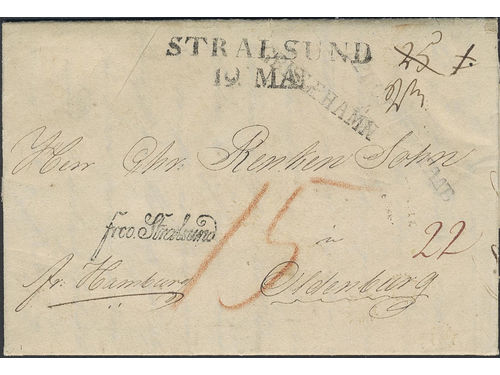 STRALSUND
19. MAI
HAMN
25 1.
Herr Chr. Renken Sohn
15
frco. Stralsund
in
22
fr. Hamburg
Oldenburg